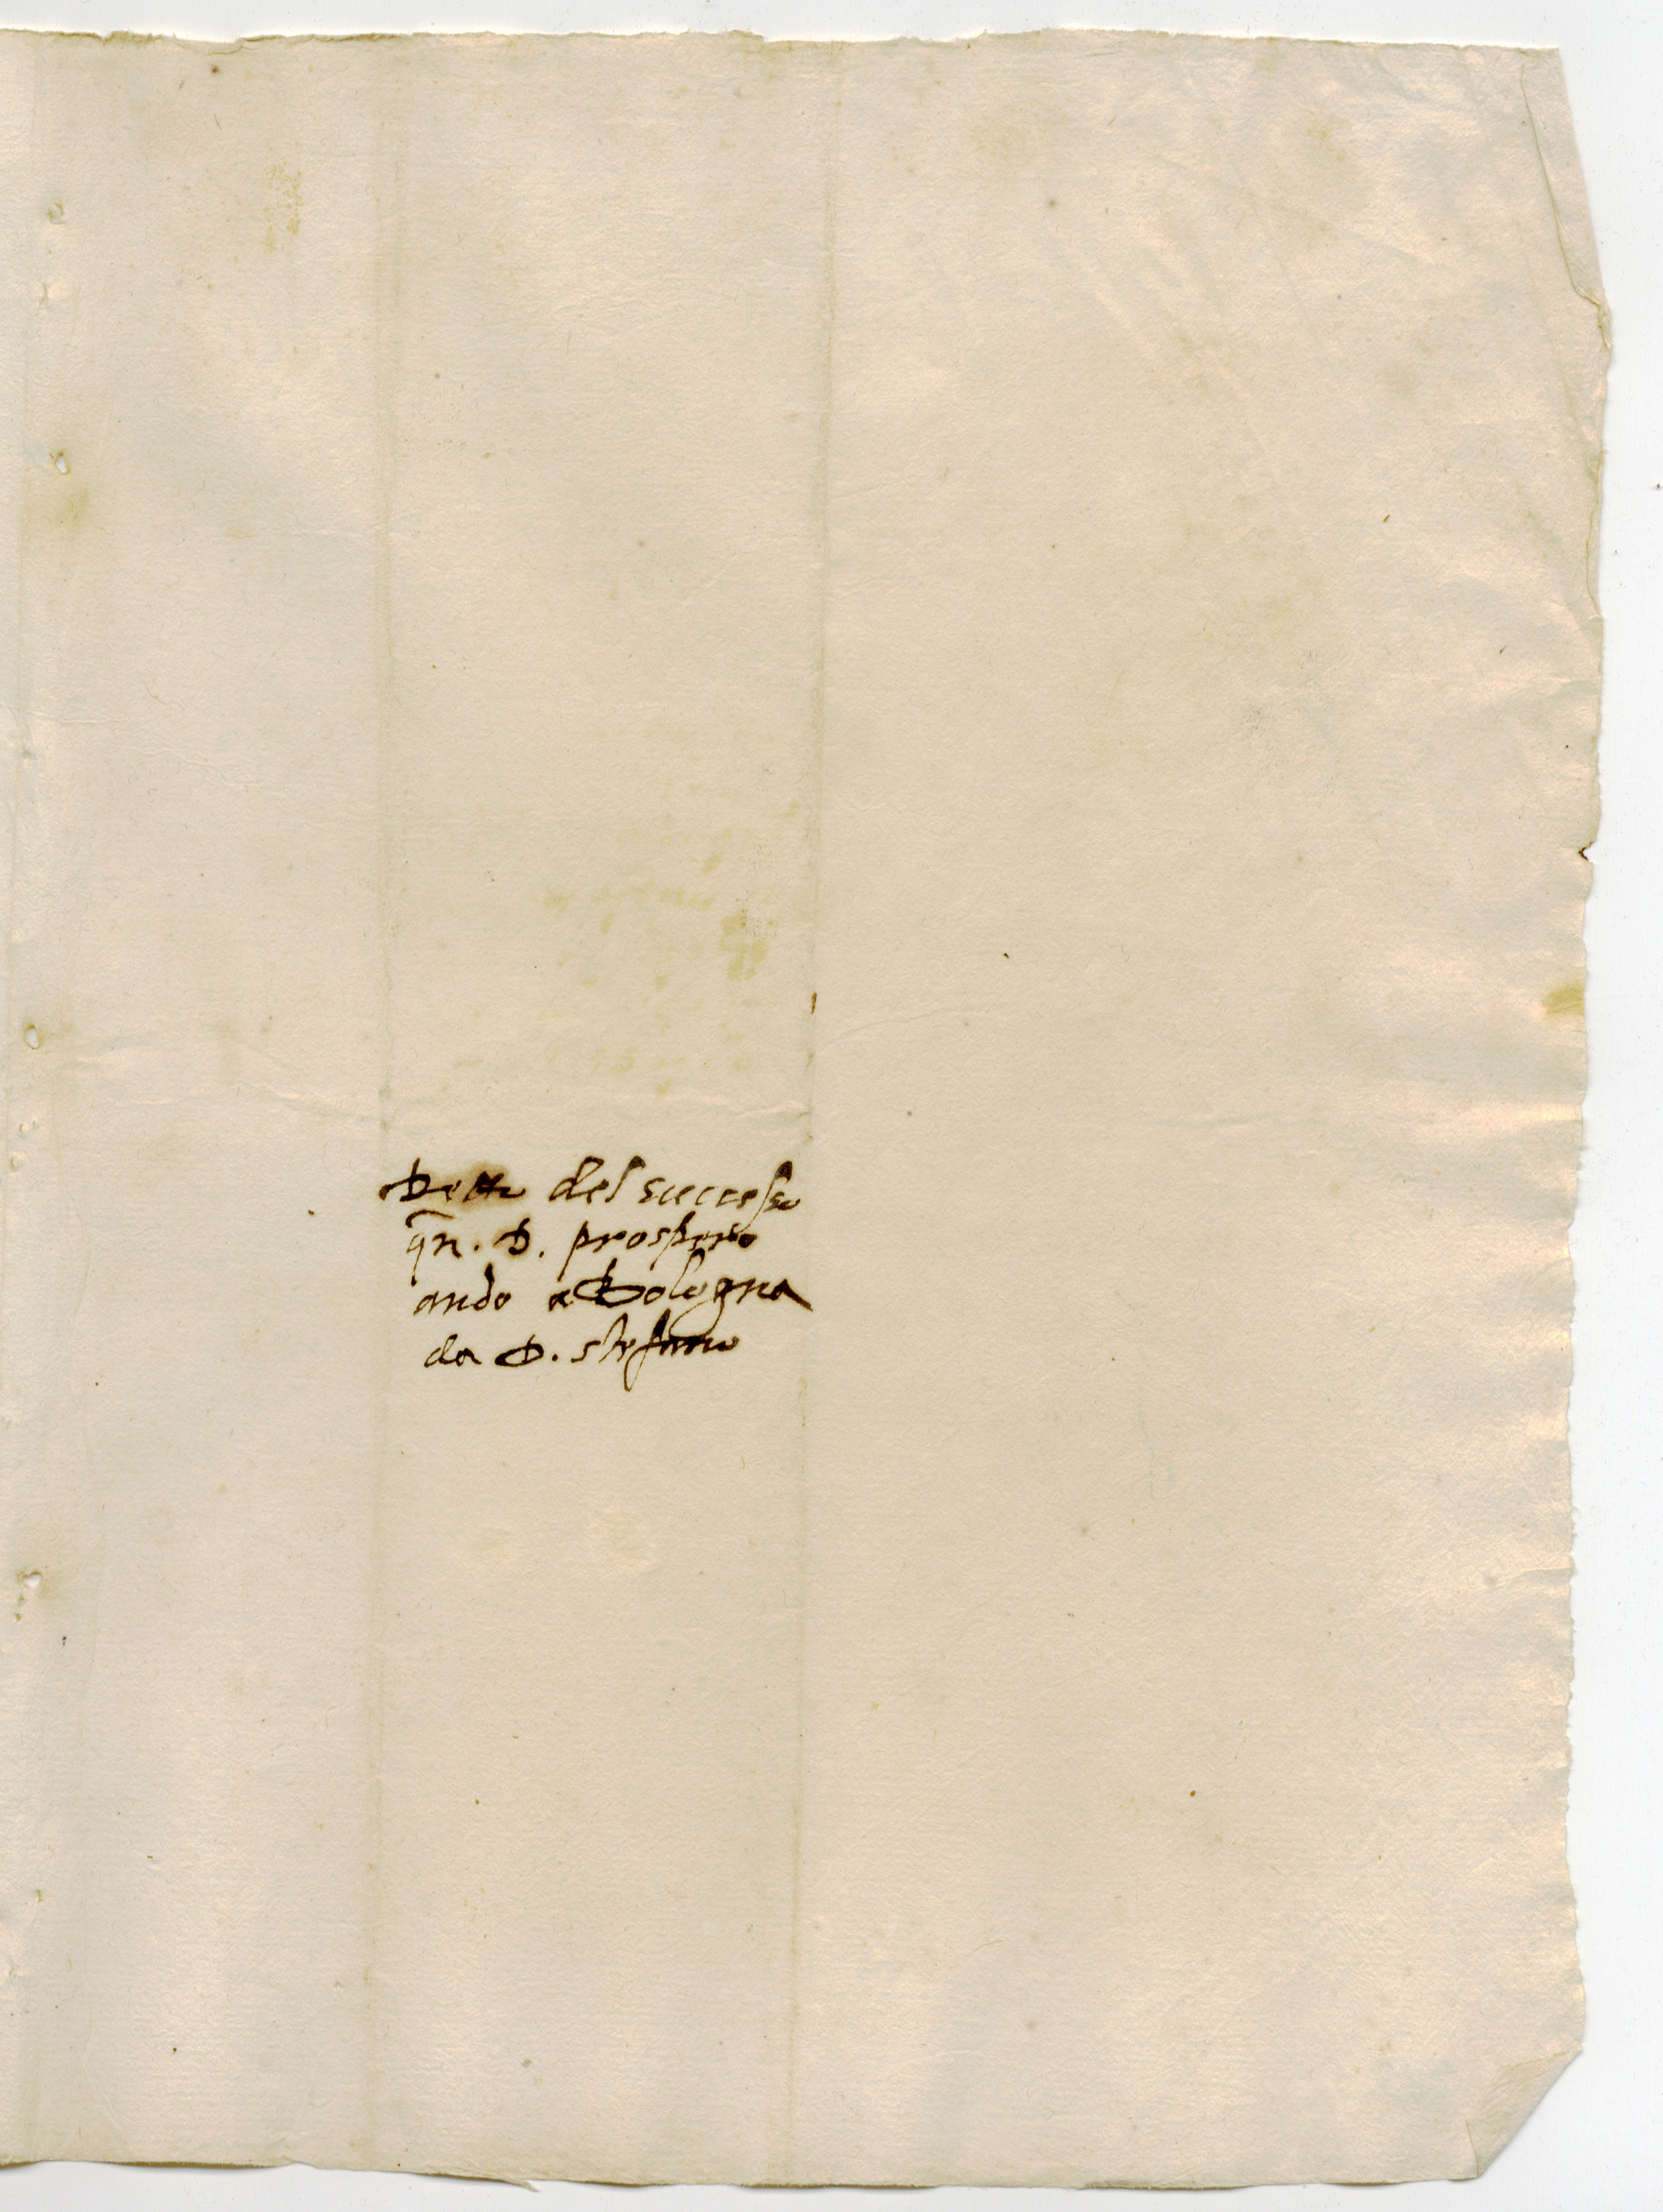 Detto del successo
qn̄. D. prospero
andò a Bologna
da D. stefano